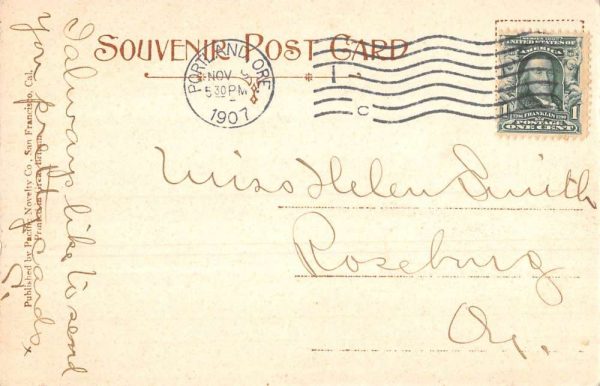 SOUVENIR POST CARD
PORTLAND, ORE.
NOV 5
5 30 PM
1907
1
C
UNITED STATES OF
AMERICA
FRANKLIN
POSTAGE
1 ONE CENT 1
Miss Helen Smith
Roseburg
Or.
I always like to send
you pretty cards
Published by Pacific Novelty Co., San Francisco, Cal.